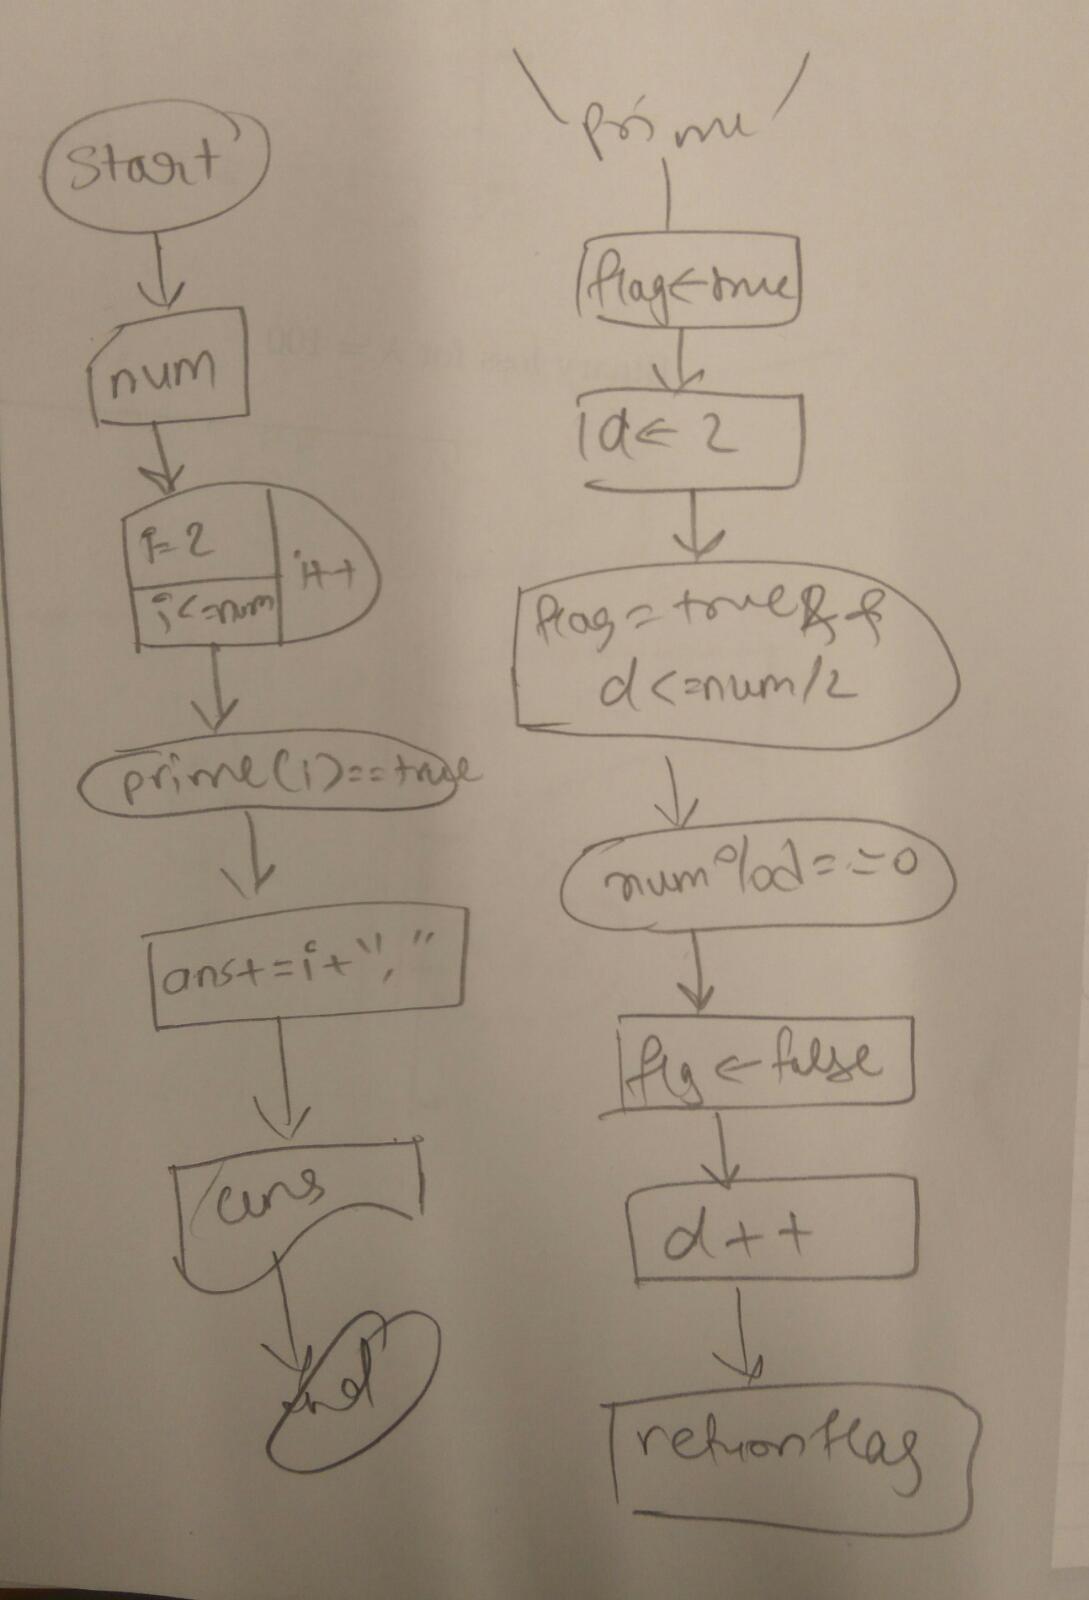 Start
num
i=2
i<=num
i++
prime(i)==true
ans+=i+","
ans
End
prime
flag←true
d←2
flag=true&&
d<=num/2
num%d==0
flg←false
d++
return flag